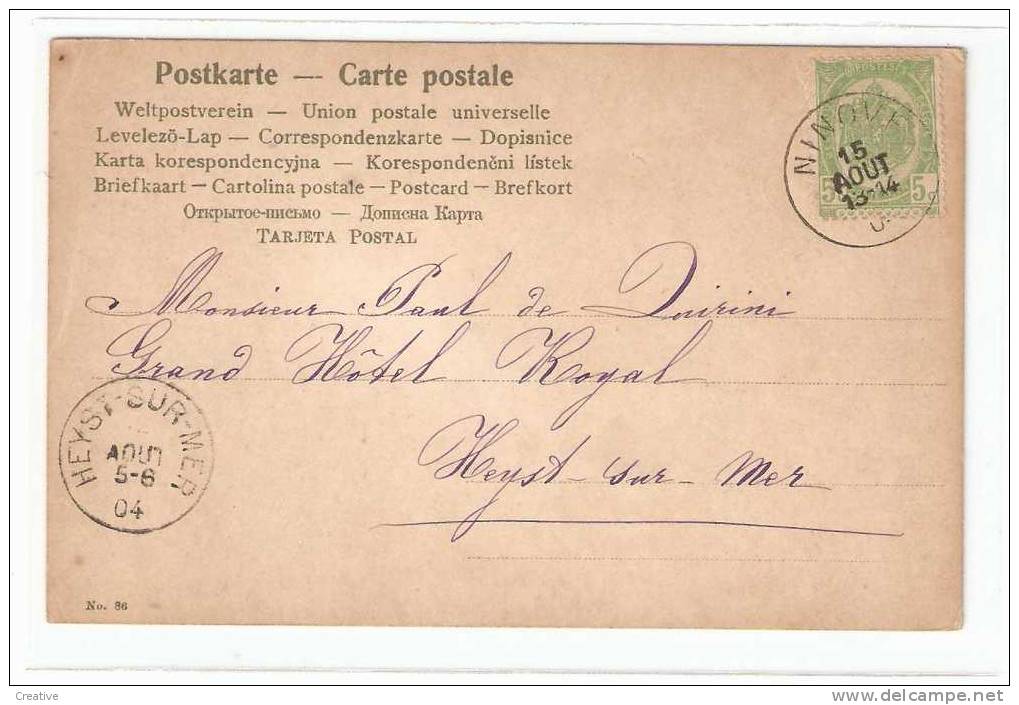 Postkarte — Carte postale
Weltpostverein — Union postale universelle
Levelező-Lap — Correspondenzkarte — Dopisnice
Karta korespondencyjna — Korespondenční lístek
Briefkaart — Cartolina postale — Postcard — Brefkort
Открытое-письмо — Дописна Карта
TARJETA POSTAL
NINOVE
15
AOUT
13-14
5
5
Monsieur Paul de Quirini
Grand Hôtel Royal
Heyst-sur-Mer
HEYST-SUR-MER
AOUT
5-6
04
No. 86
Creative
www.delcampe.net